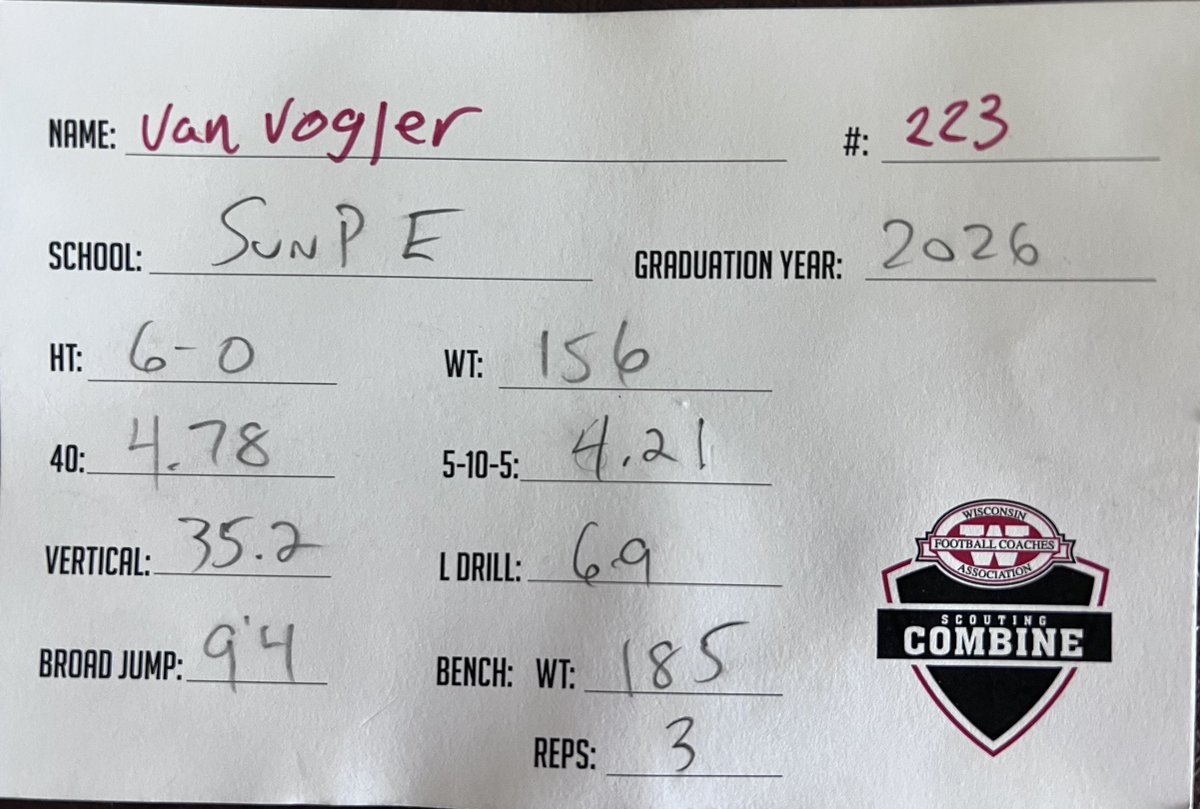 NAME: Van Vogler #: 223
SCHOOL: SUN P E GRADUATION YEAR: 2026
HT: 6-0 WT: 156
40: 4.78 5-10-5: 4.21
VERTICAL: 35.2 L DRILL: 6.9
BROAD JUMP: 9'4 BENCH: WT: 185
REPS: 3
WISCONSIN
W
FOOTBALL COACHES
ASSOCIATION
SCOUTING
COMBINE